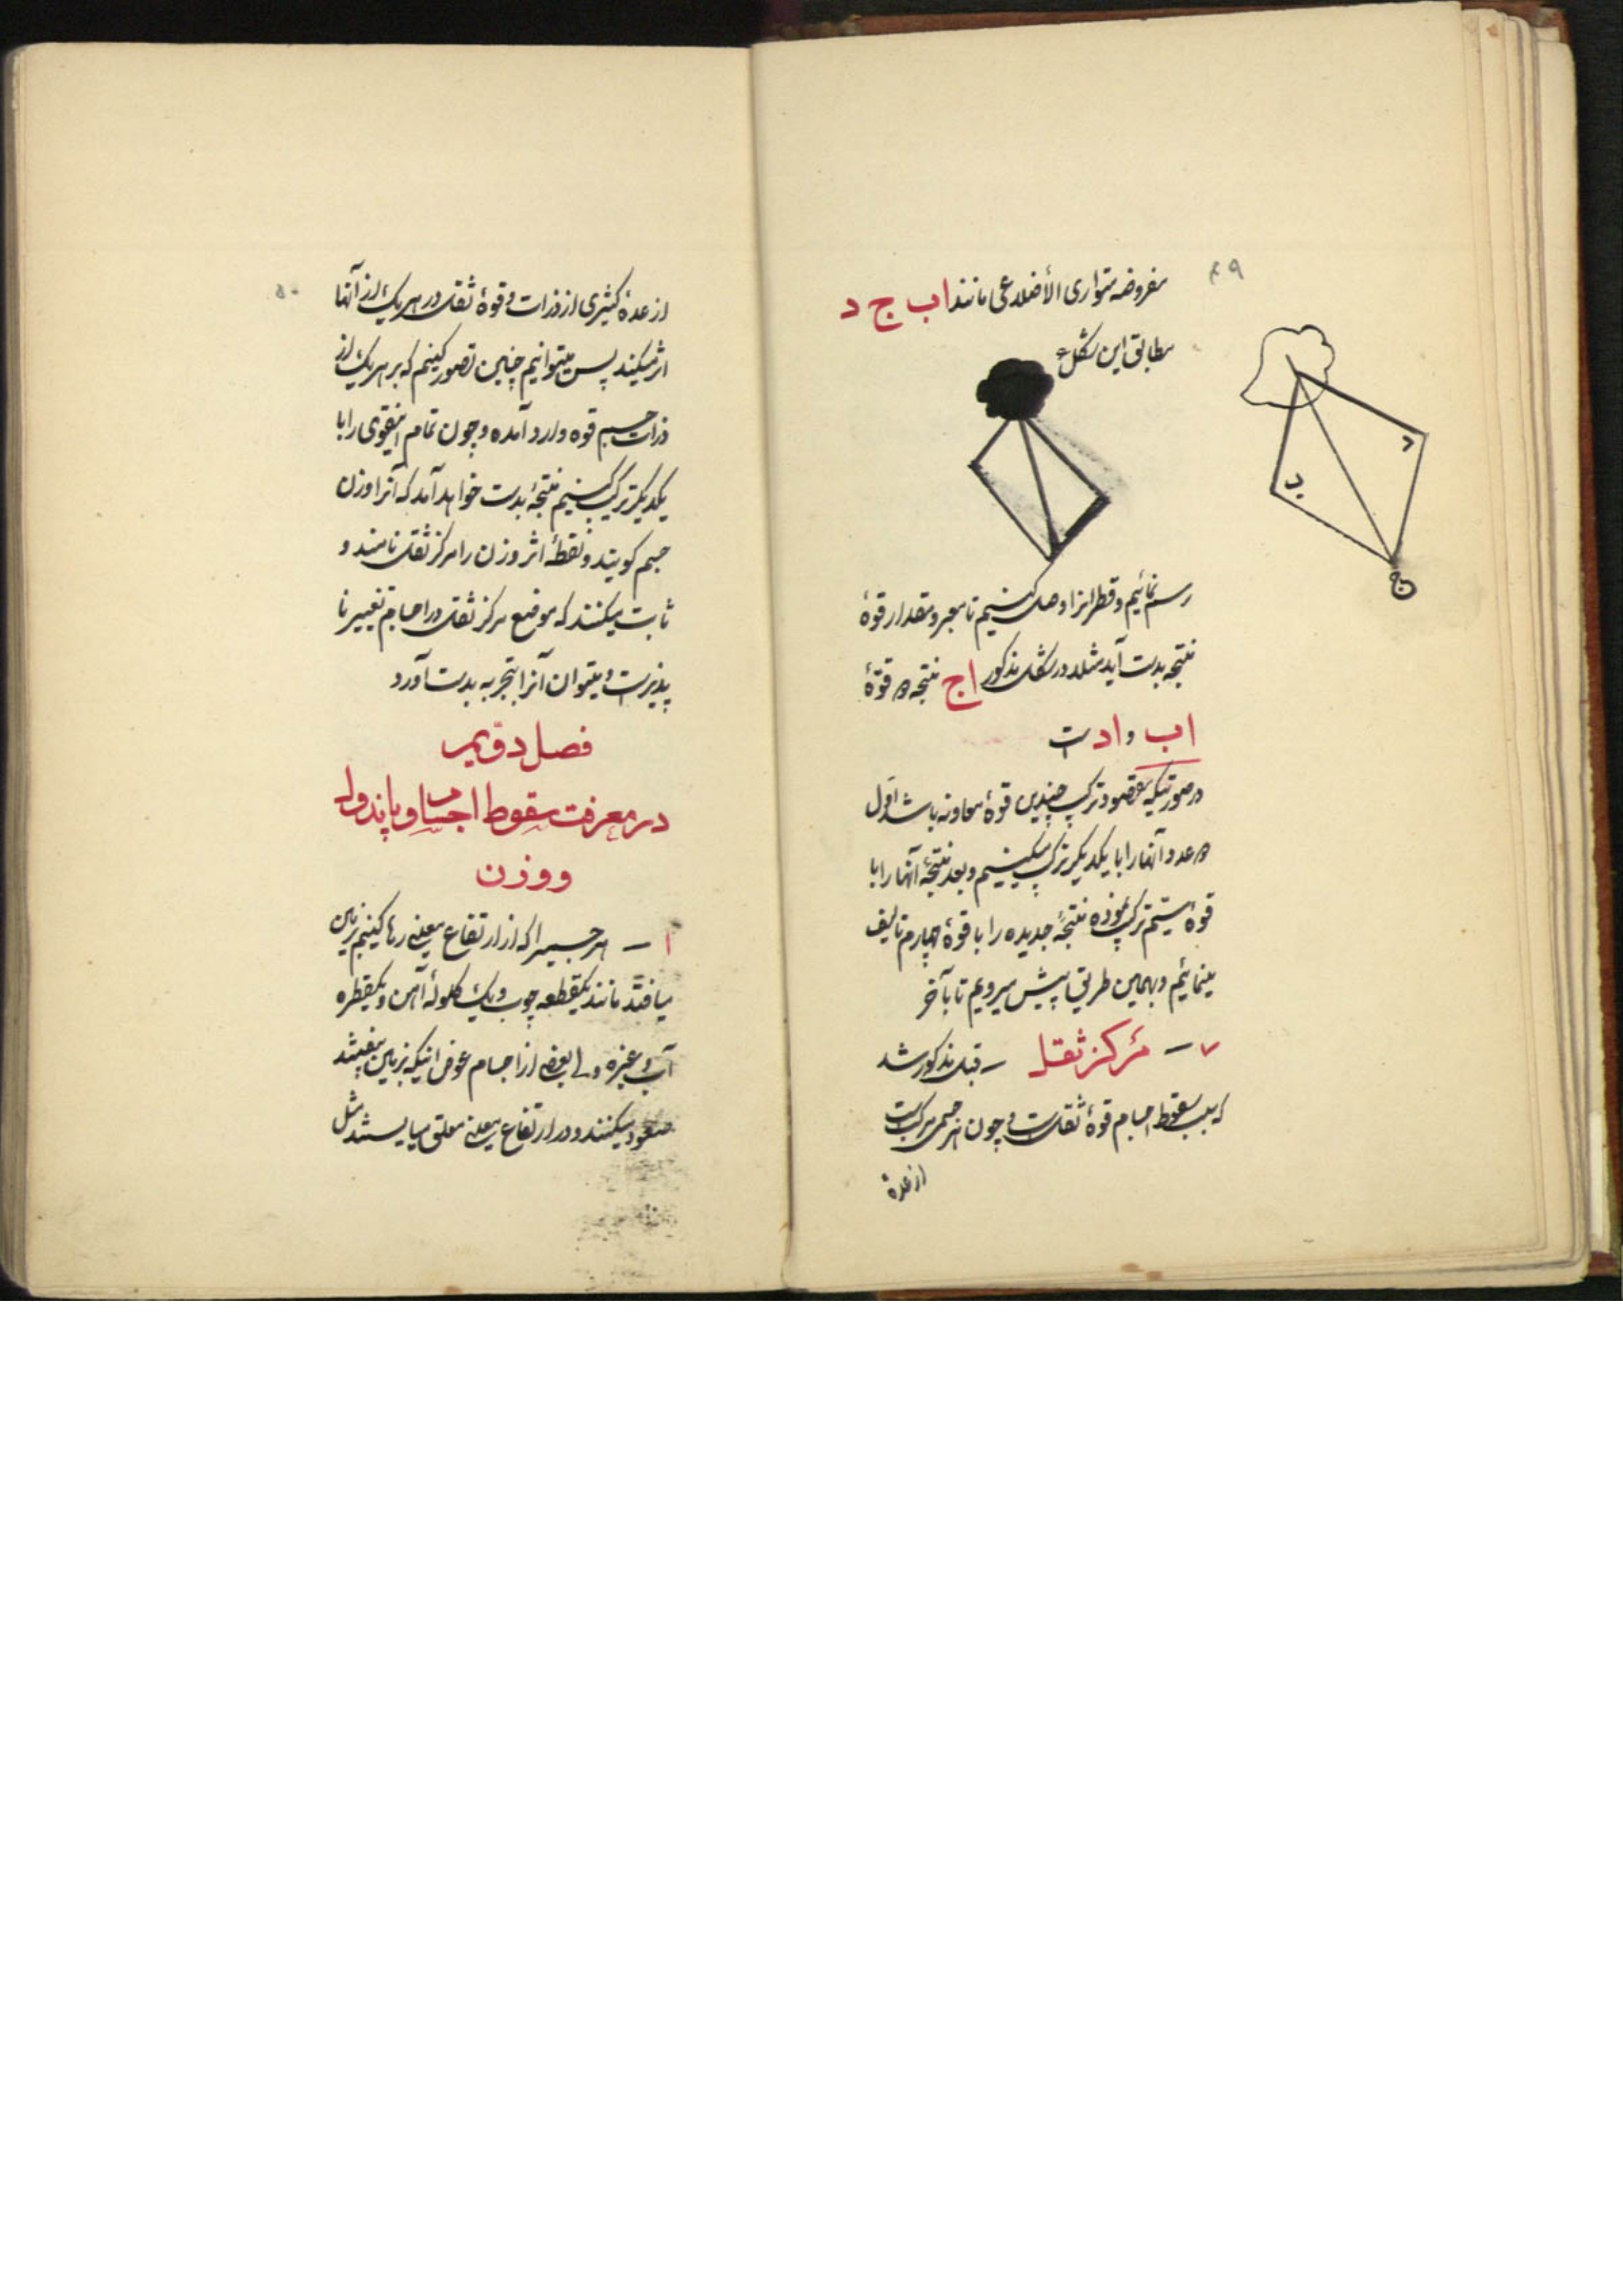 ۴۹
مفروضه متوازی الأضلاعی مانند اب ج د
مطابق این شکل
د
ب
ج
رسم نمائیم و قطر انرا وصل کنیم تا معبر و مقدار قوهٔ
نتیجه بدست آید مثلا در شکل مذکور اج نتیجه دو قوّهٔ
اب و اد است
در صورتیکه مقصود ترکیب چندین قوهٔ معاونه باشد اول
دو عدد آنها را با یکدیگر ترکیب میکنیم و بعد نتیجهٔ آنها را با
قوهٔ سیّم ترکیب نموده نتیجهٔ جدیده را با قوهٔ چهارم تالیف
مینمائیم و بهمین طریق پیش میرویم تا بآخر
۷ — مرکز ثقل — قبل مذکور شد
که سبب سقوط اجسام قوهٔ ثقل است و چون هر جسمی مرکب است
از عدهٔ
۵۰
از عدهٔ کثیری از ذرات و قوهٔ ثقل در هر یک از آنها
اثر میکند پس میتوانیم چنین تصور کنیم که بر هر یک از
ذرات جسم قوه وارد آمده و چون تمام اینقوی را با
یکدیگر ترکیب کنیم نتیجهٔ بدست خواهد آمد که آنرا وزن
جسم کویند و نقطهٔ اثر وزن را مرکز ثقل نامند و
ثابت میکنند که موضع مرکز ثقل در اجسام تغییر نا
پذیر است و میتوان آنرا بتجربه بدست آورد
فصل دوّیم
در معرفت سقوط اجسام و پاندول
و وزن
۱ — هر جسمیرا که از ارتفاع معینی رها کنیم بزمین
میافتد مانند یکقطعه چوب و یک کلولهٔ آهن و یکقطره
آب و غیره ولی بعضی از اجسام عوض اینکه بزمین بیفتند
صعود میکنند و در ارتفاع معینی معلق میایستند مثل